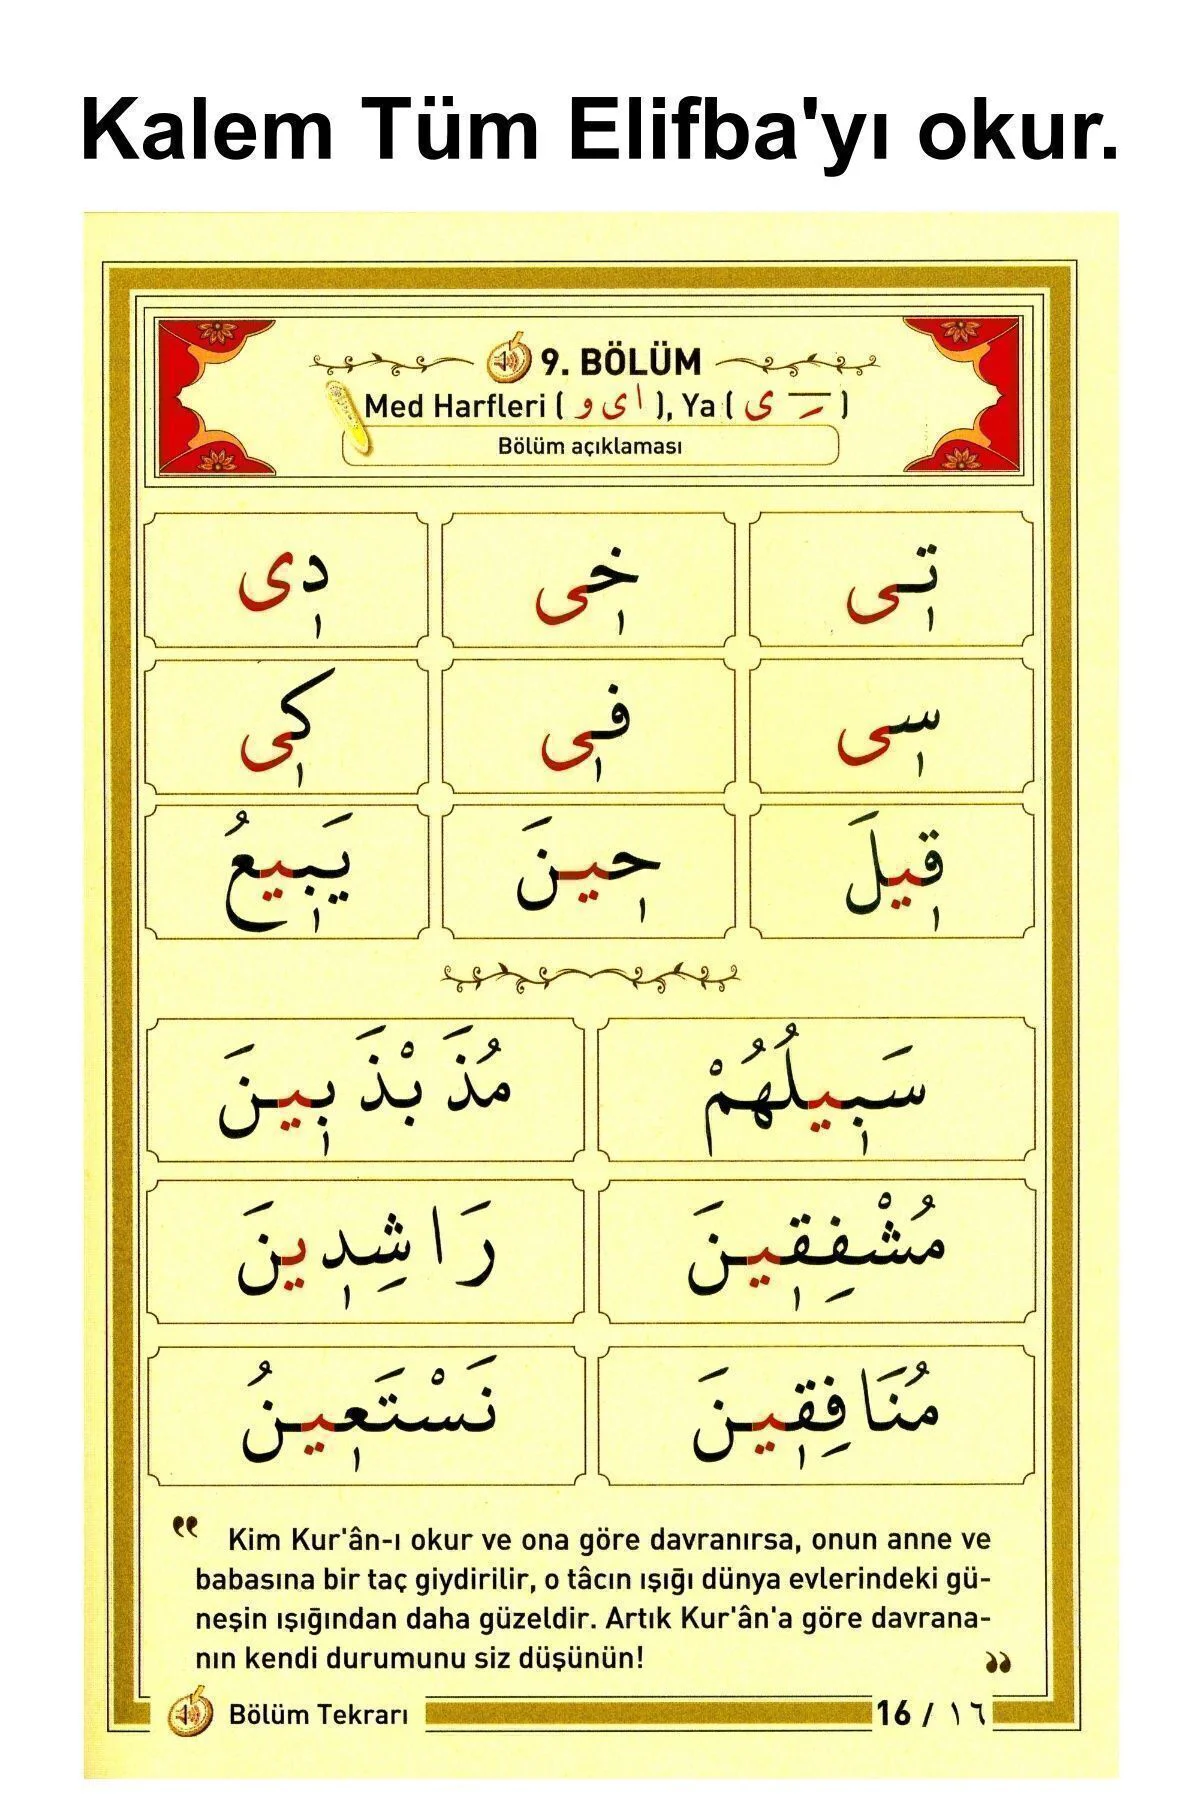 Kalem Tüm Elifba'yı okur.
9. BÖLÜM
Med Harfleri ( ا ى و ), Ya ( ى )
Bölüm açıklaması
تٖى خٖى دٖى
سٖى فٖى كٖى
قٖيلَ حٖينَ يَبٖيعُ
سَبٖيلُهُمْ مُذَبْذَبٖينَ
مُشْفِقٖينَ رَاشِدٖينَ
مُنَافِقٖينَ نَسْتَعٖينُ
“ Kim Kur'ân-ı okur ve ona göre davranırsa, onun anne ve
babasına bir taç giydirilir, o tâcın ışığı dünya evlerindeki gü-
neşin ışığından daha güzeldir. Artık Kur'ân'a göre davrana-
nın kendi durumunu siz düşünün! ”
Bölüm Tekrarı
16 / ١٦